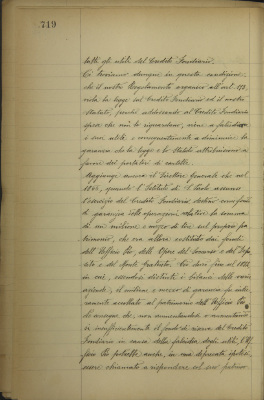 749
tutti gli utili del Credito Fondiario.
Ci troviamo dunque in questa condizione
che il nostro Regolamento organico all'art. 173,
viola la legge sul Credito Fondiario ed il nostro
Statuto, perché addossando al Credito Fondiario
spese che non lo riguardano, viene a
i suoi utili, e conseguentemente a diminuire la
garanzia che la legge e lo Statuto attribuiscono in
favore dei portatori di cartelle.
Aggiunge ancora il Direttore Generale che nel
1866, quando l'Istituto di S. Paolo assunse
l'esercizio del Credito Fondiario destinò come fondo
di garanzia delle operazioni relative la somma
di un milione e mezzo di lire sul proprio pa-
trimonio, che era allora costituito dai fondi
dell'Ufficio Pio, dell'Opera del Soccorso e del Depo-
sito e del Monte Gratuito. Più tardi fino al
in cui, essendosi distinti i bilanci delle varie
aziende, il milione e mezzo di garanzia fu inte-
ramente accollato al patrimonio dell'Ufficio Pio.
Ne avverrà che, non aumentandosi o aumentandosi
in insufficientemente il fondo di riserva del Credito
Fondiario in causa della falcidia degli utili, l'Uf-
ficio Pio potrebbe anche, in una disperata ipotesi,
essere chiamato a rispondere col suo patrimo-